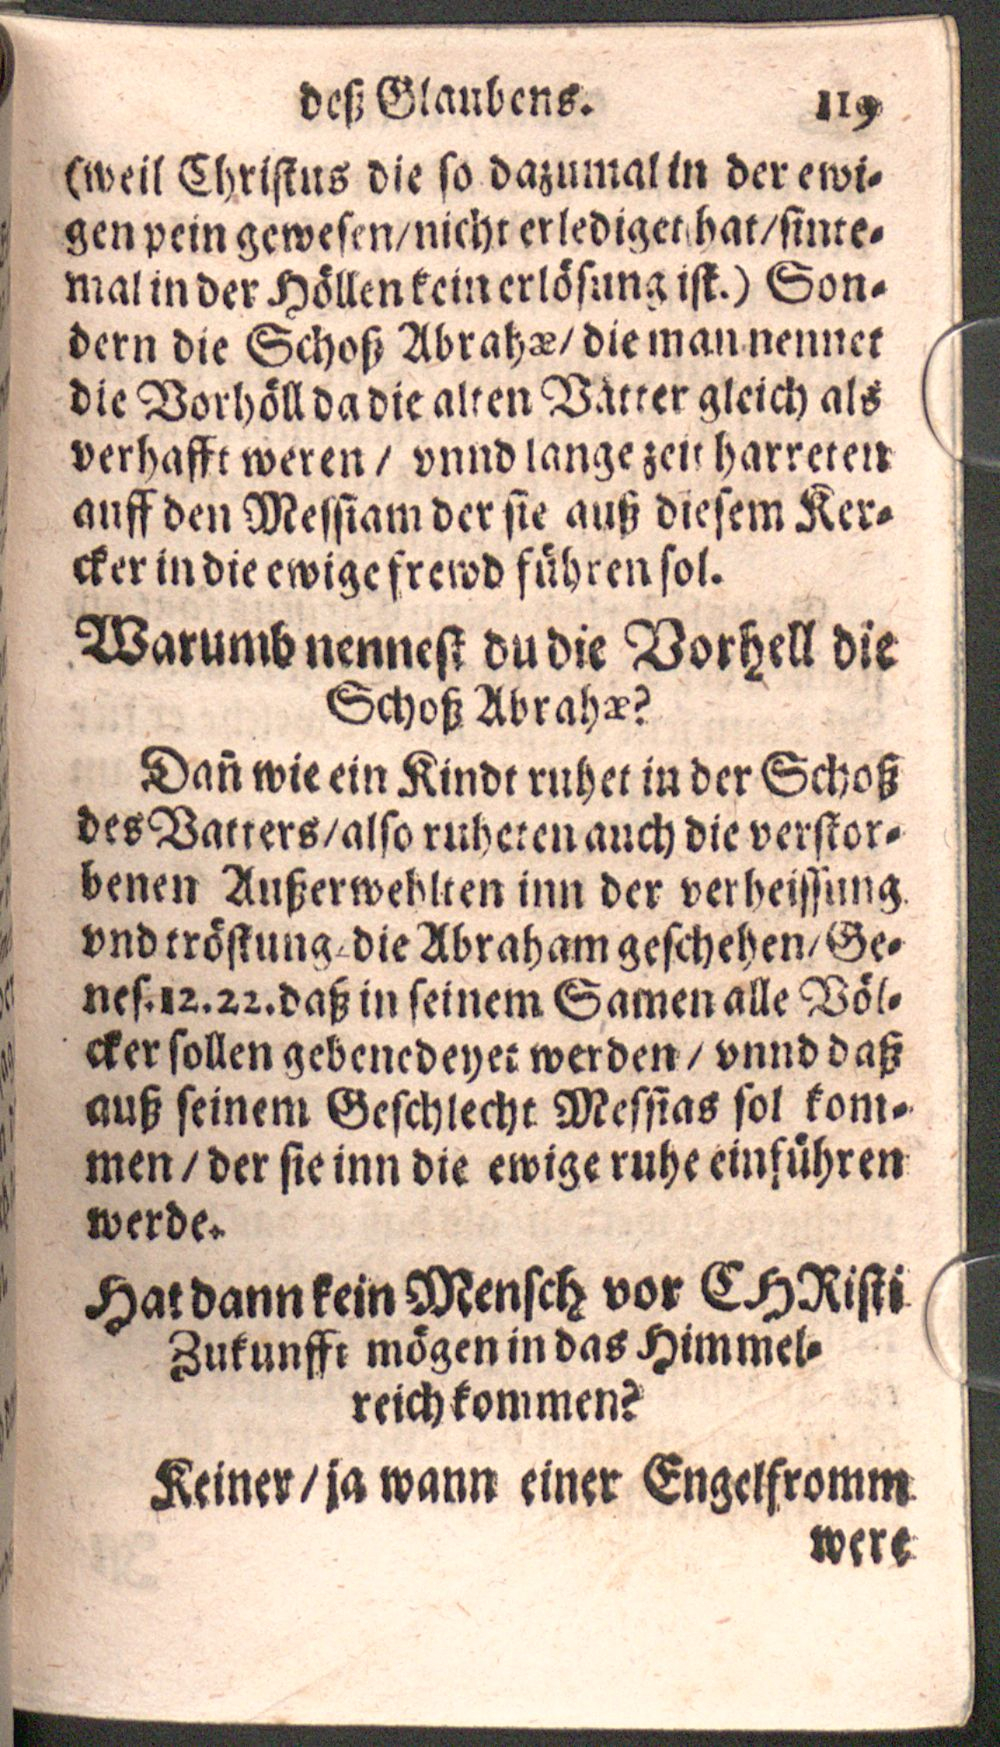 deß Glaubens. 119
(weil Christus die so dazumal in der ewi-
gen pein gewesen/nicht erlediget hat/sinte-
mal in der Höllen kein erlösung ist.) Son-
dern die Schoß Abrahæ/ die man nennet
die Vorhöll da die alten Vätter gleich als
verhafft weren/ vnnd lange zeit harreten
auff den Messiam der sie auß diesem Ker-
cker in die ewige frewd führen sol.
Warumb nennest du die Vorhell die
Schoß Abrahæ?
Dañ wie ein Kindt ruhet in der Schoß
des Vatters/also ruheten auch die verstor-
benen Außerwehlten inn der verheissung
vnd tröstung/die Abraham geschehen/Ge-
nes.12.22.daß in seinem Samen alle Völ-
cker sollen gebenedeyet werden/ vnnd daß
auß seinem Geschlecht Messias sol kom-
men/ der sie inn die ewige ruhe einführen
werde.
Hat dann kein Mensch vor CHRisti
Zukunfft mögen in das Himmel-
reich kommen?
Keiner/ja wann einer Engelfromm
were